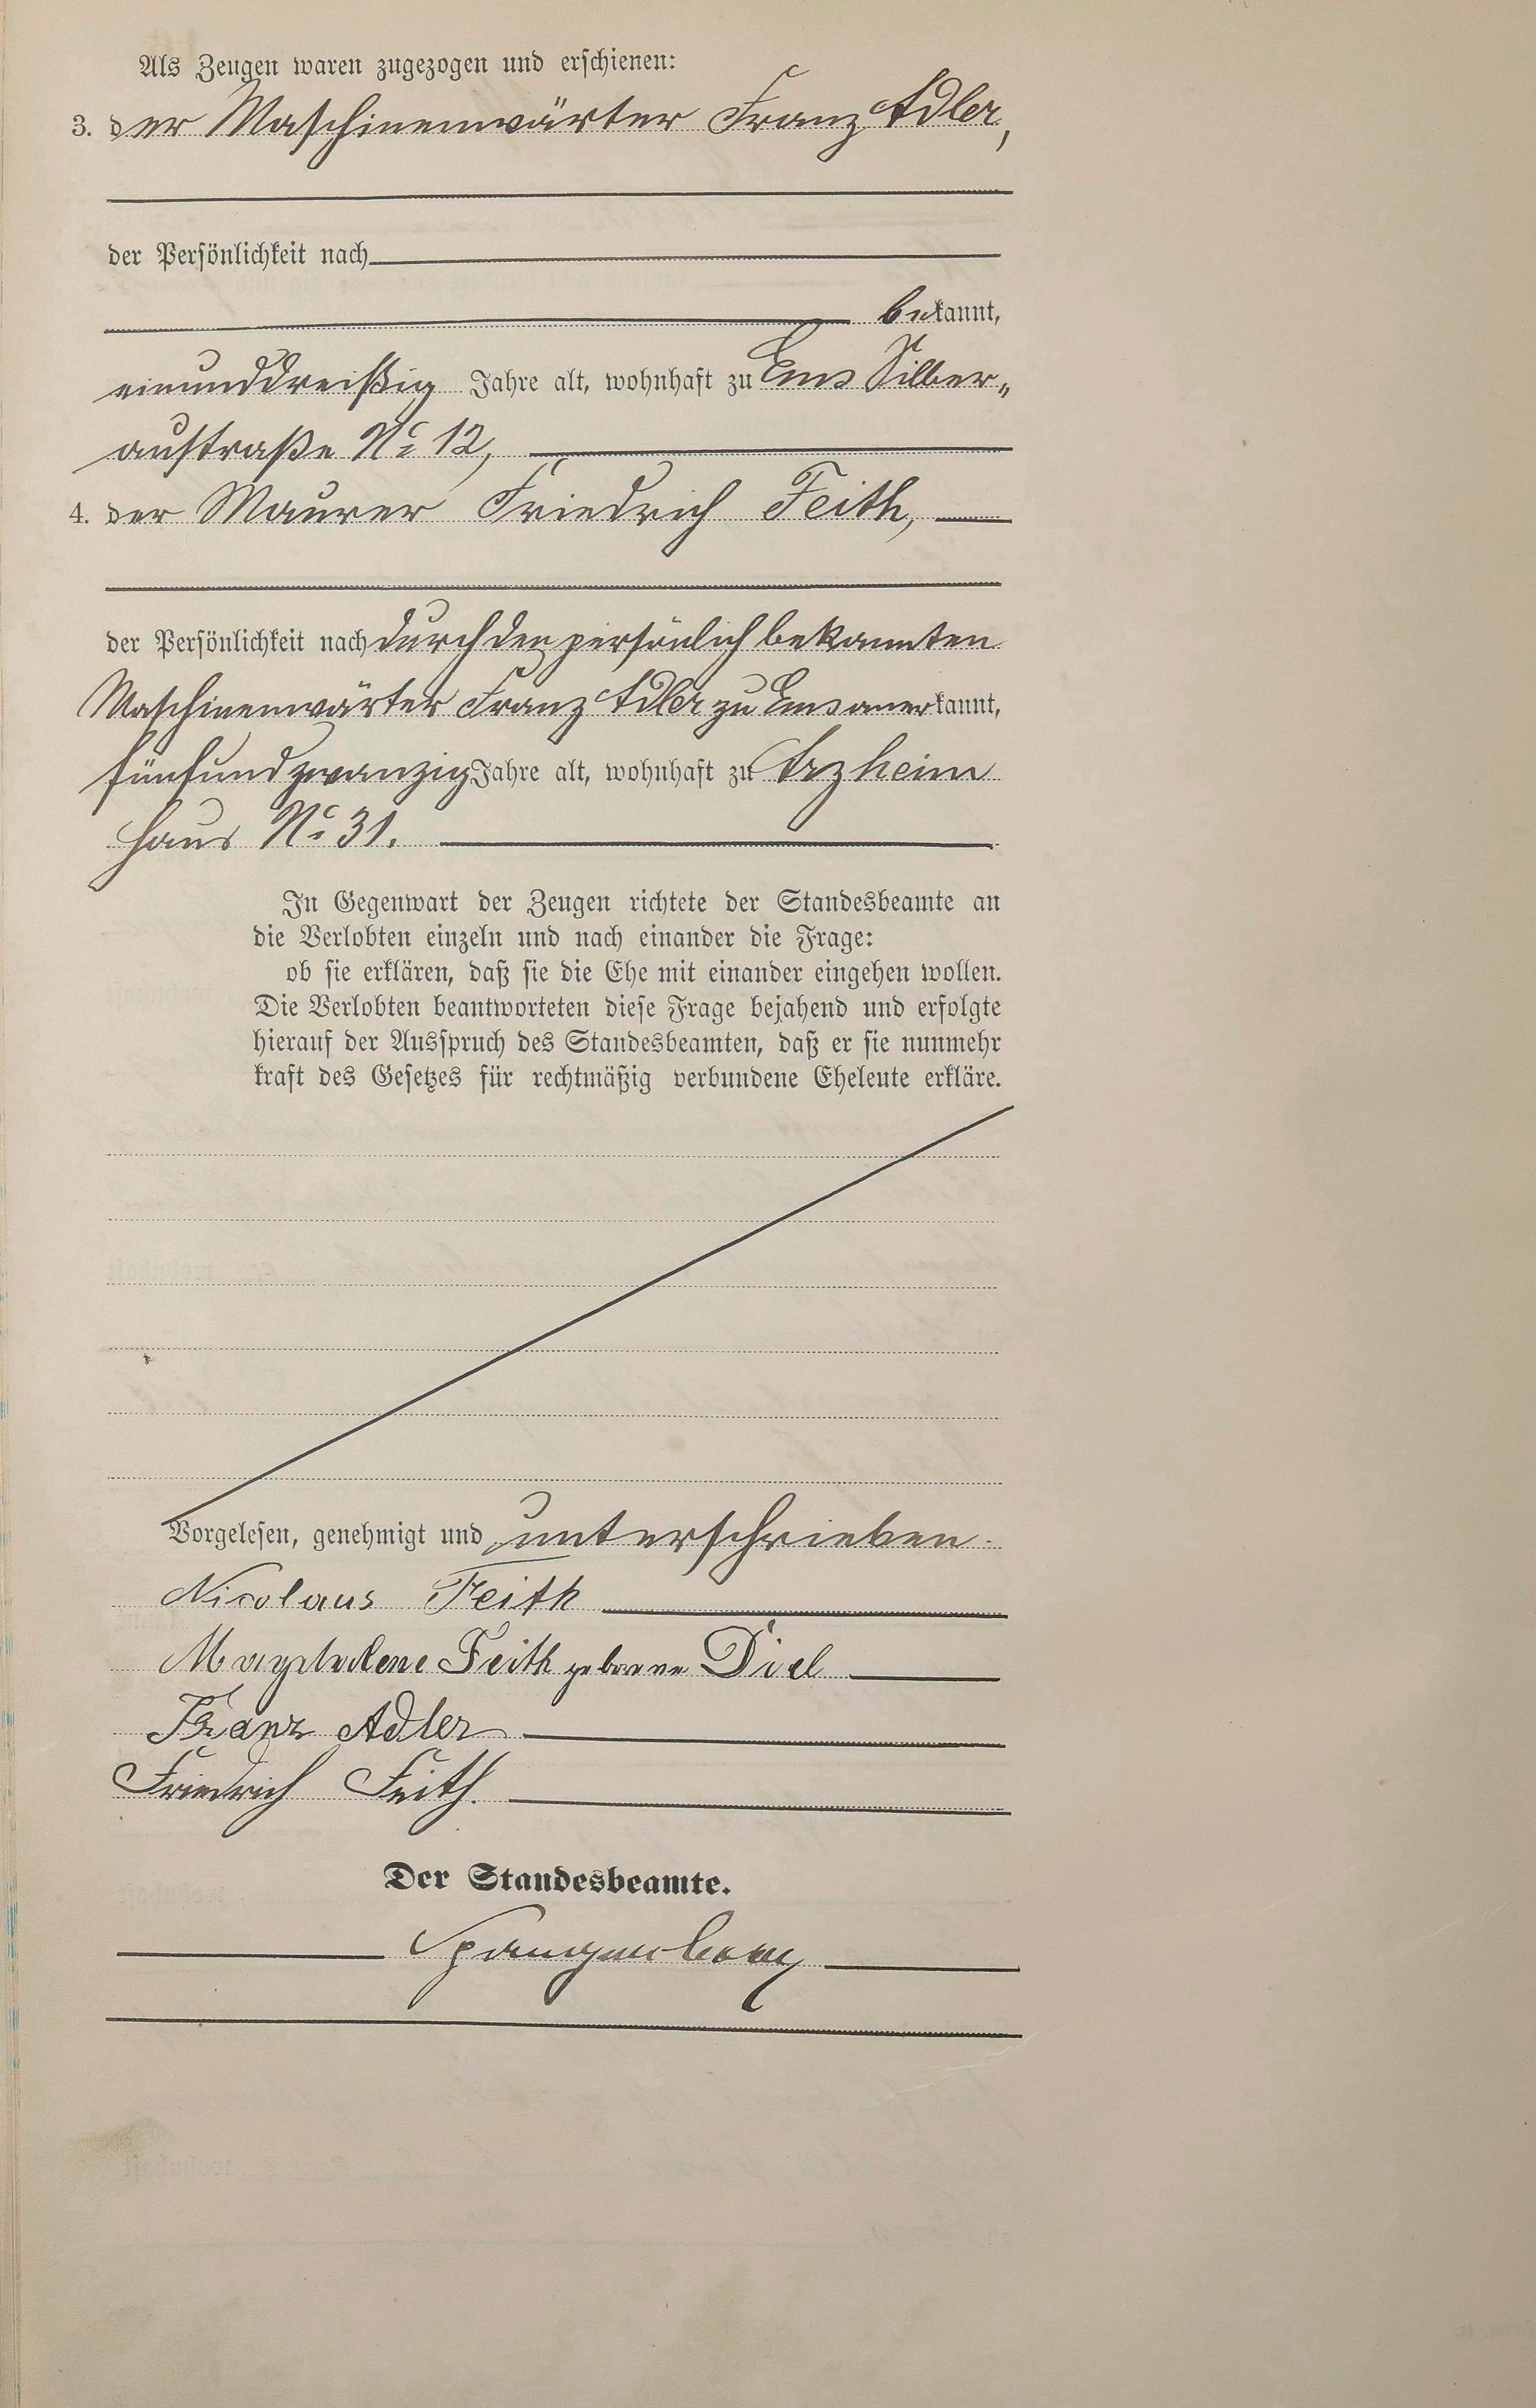 Als Zeugen waren zugezogen und erschienen:
3. der Maschinenwärter Franz Adler,
der Persönlichkeit nach
bekannt,
einunddreißig Jahre alt, wohnhaft zu Ems Silber„
austraße No 12,
4. der Maurer Friedrich Feith,
der Persönlichkeit nach durch den persönlich bekannten
Maschinenwärter Franz Adler zu Ems anerkannt,
fünfundzwanzig Jahre alt, wohnhaft zu Arzheim
Haus No 31.
In Gegenwart der Zeugen richtete der Standesbeamte an
die Verlobten einzeln und nach einander die Frage:
ob sie erklären, daß sie die Ehe mit einander eingehen wollen.
Die Verlobten beantworteten diese Frage bejahend und erfolgte
hierauf der Ausspruch des Standesbeamten, daß er sie nunmehr
kraft des Gesetzes für rechtmäßig verbundene Eheleute erkläre.
Vorgelesen, genehmigt und unterschrieben.
Nicolaus Feith
Magdalene Feith geborene Diel
Franz Adler
Friedrich Feith.
Der Standesbeamte.
Spangenberg